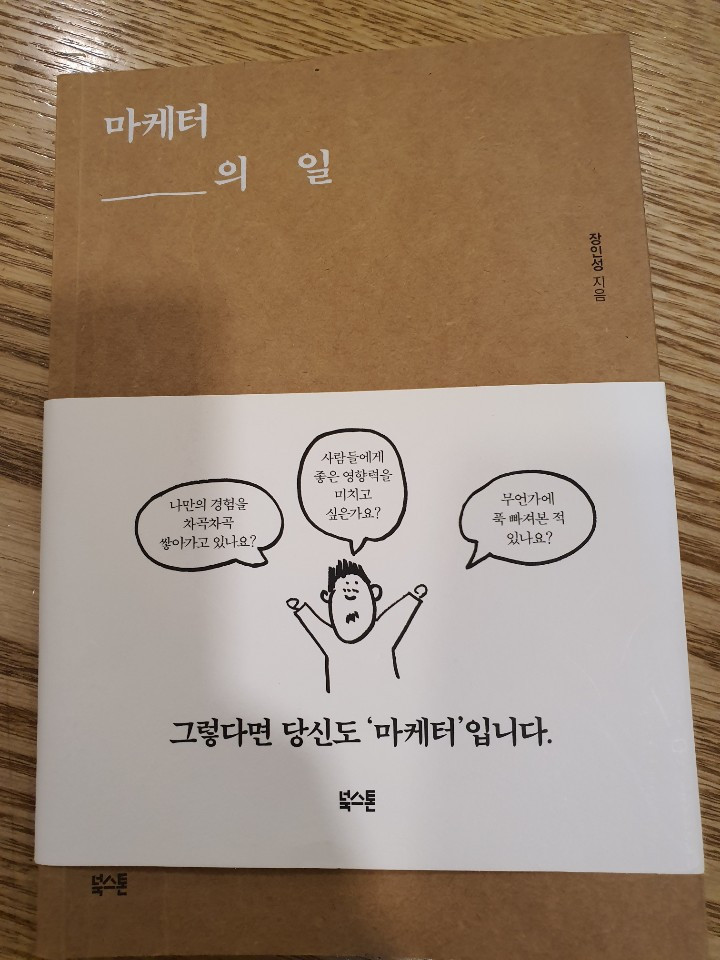 마케터
의 일
장인성 지음
사람들에게
좋은 영향력을
미치고
싶은가요?
나만의 경험을
차곡차곡
쌓아가고 있나요?
무언가에
푹 빠져본 적
있나요?
그렇다면 당신도 ‘마케터’입니다.
북스톤
북스톤